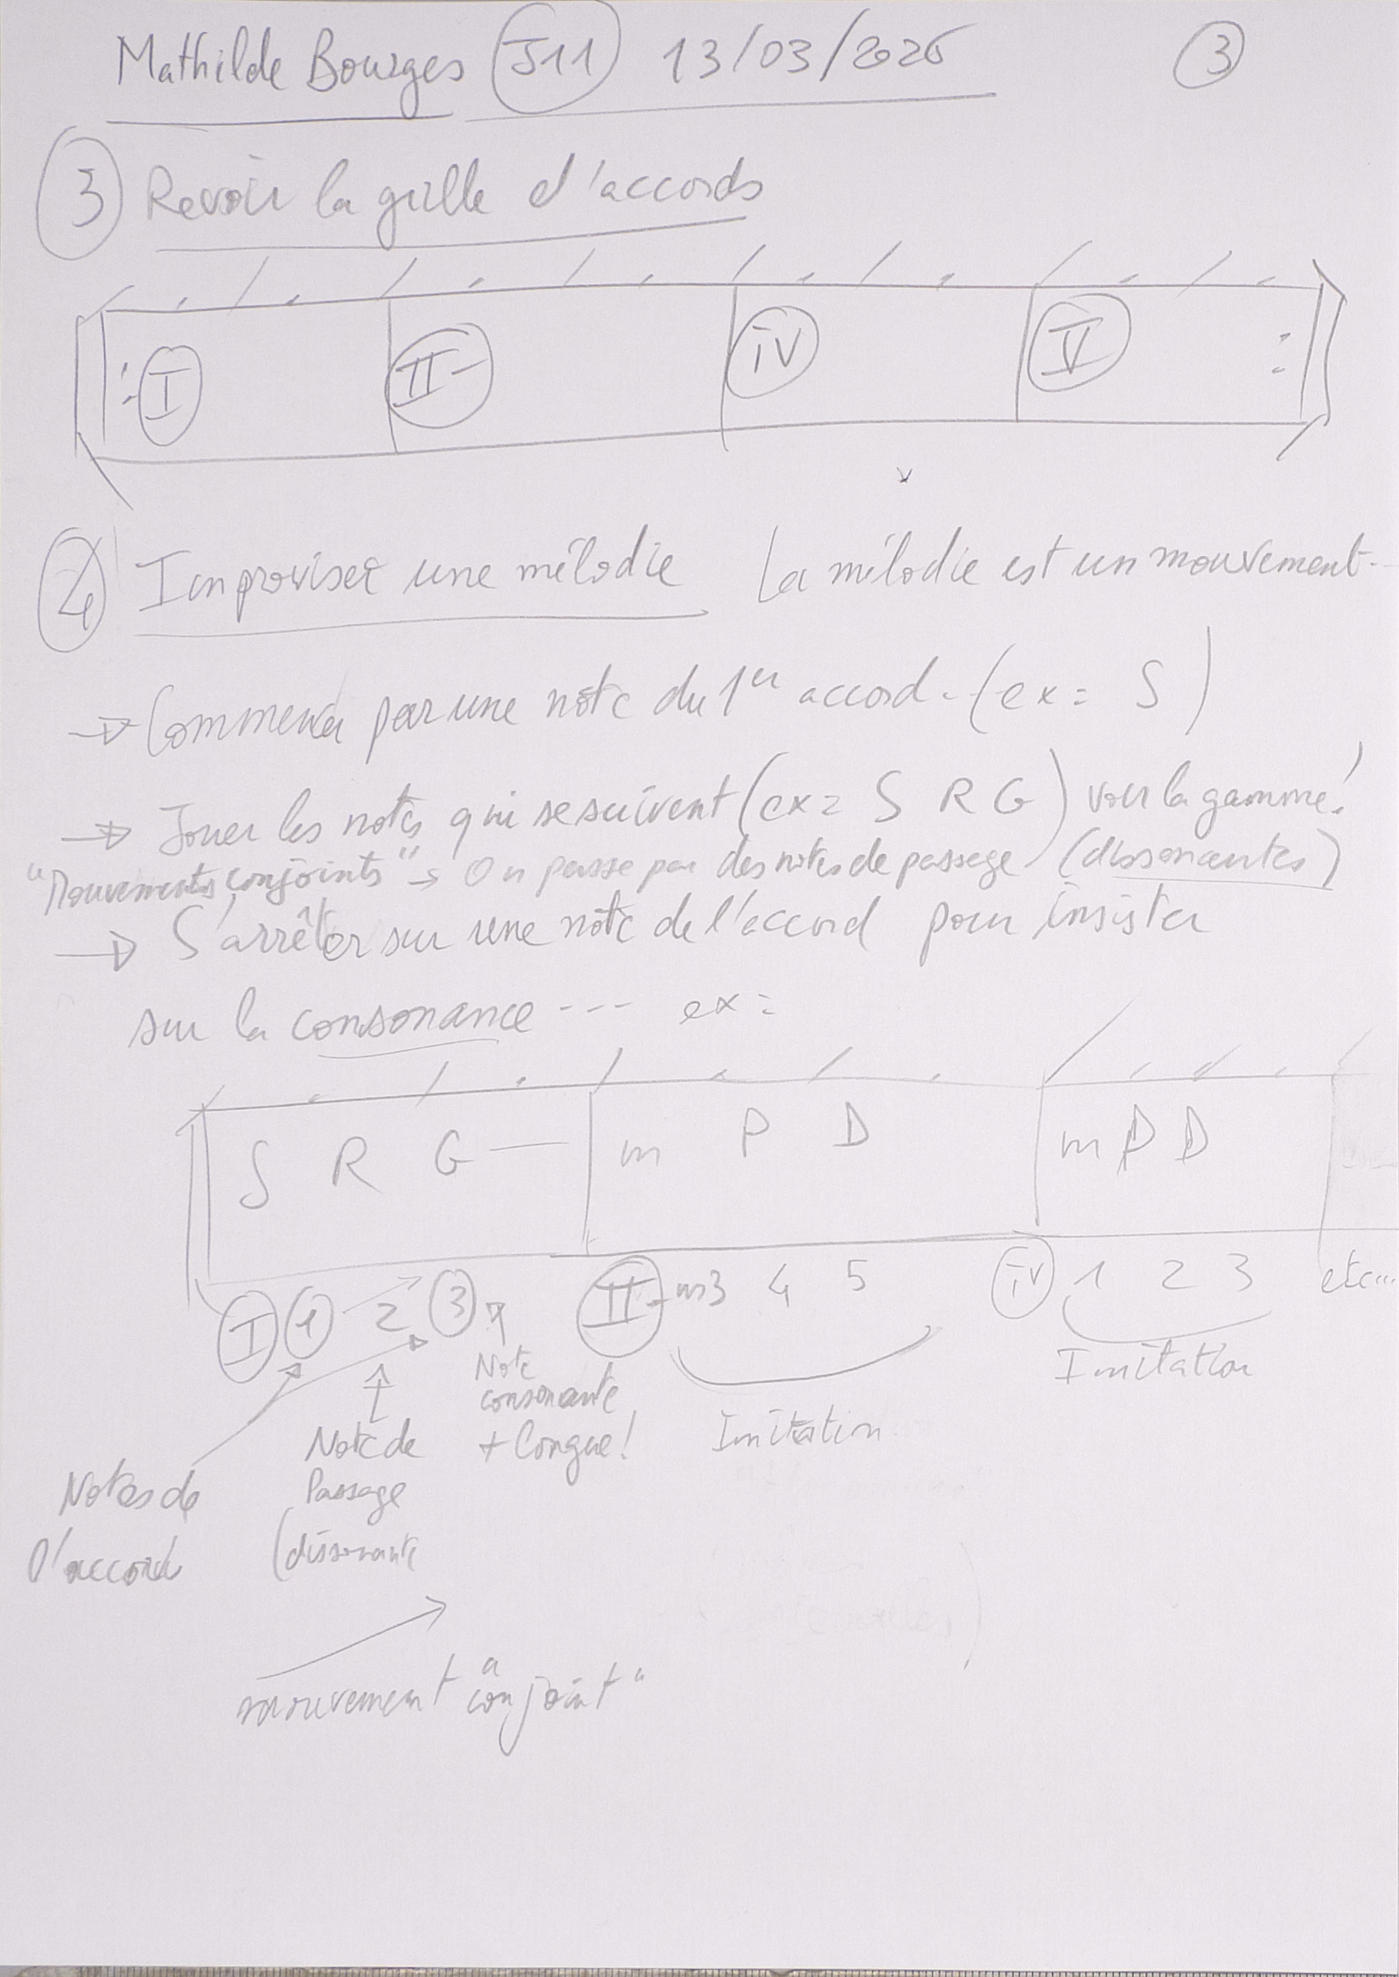 Mathilde Bourges J11 13/03/2026 3
3 Revoir la grille d'accords
I II- IV V
4 Improviser une mélodie La mélodie est un mouvement...
→ Commencer par une note du 1er accord. (ex = S)
→ Jouer les notes qui se suivent (ex = S R G) voir la gamme!
"Mouvements conjoints" → On passe par des notes de passage (dissonantes)
→ S'arrêter sur une note de l'accord pour insister
sur la consonance --- ex =
S R G — m P D m P D
I 1 2 3 II- m3 4 5 IV 1 2 3 etc...
Note
consonante
+ longue!
Imitation
Imitation
Notes de
l'accord
Note de
Passage
(dissonante
mouvement "conjoint"